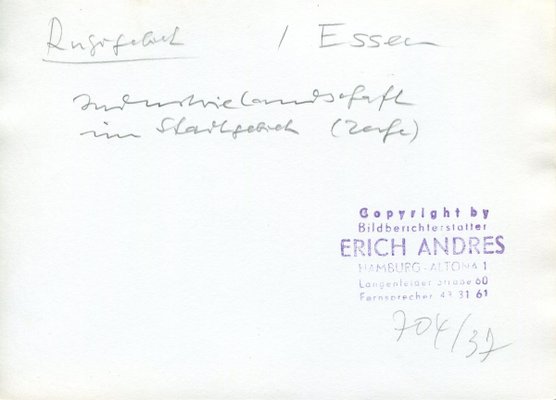 Ruhrgebiet / Essen
Industrielandschaft
im Stadtgebiet (Zeche)
Copyright by
Bildberichterstatter
ERICH ANDRES
HAMBURG-ALTONA 1
Langenfelder Straße 60
Fernsprecher 43 31 61
704/37